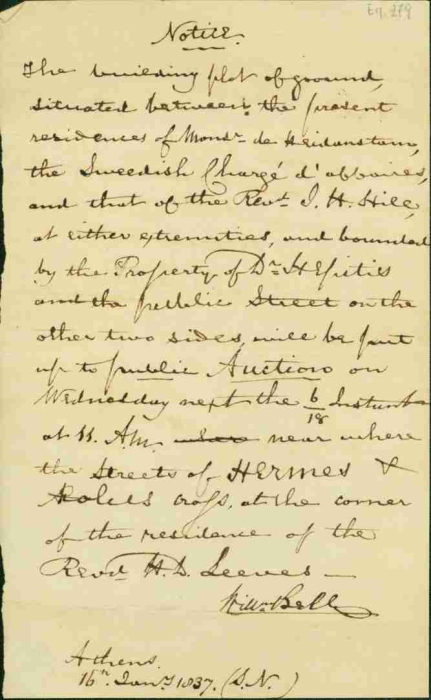 En. 279
Notice.
The building plot of ground,
situated between the present
residences of Monsr. de Heidenstam,
the Sweedish Chargé d'affaires,
and that of the Revd. J. H. Hill,
at either extremities, and bounded
by the Property of Dr.
and the public Street on the
other two sides, will be put
up to public Auction on
Wednesday next the 6/18 Instant
at 11. A.M. near where
the Streets of HERMES &
Aolus cross, at the corner
of the residence of the
Revd. H. D. Leeves —
Willm. Bell
Athens.
16th. Jany. 1837. (S.N.)